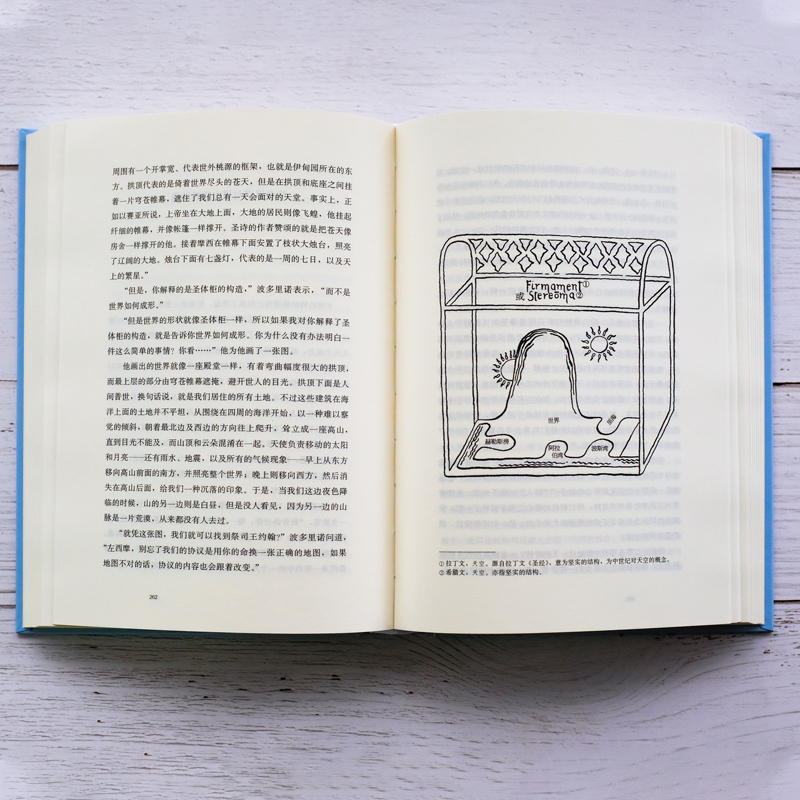 周围有一个开掌宽、代表世外桃源的框架，也就是伊甸园所在的东
方。拱顶代表的是倚着世界尽头的苍天，但是在拱顶和底座之间挂
着一片穹苍帷幕，遮住了我们总有一天会面对的天堂。事实上，正
如以赛亚所说，上帝坐在大地上面，大地的居民则像飞蝗，他挂起
纤细的帷幕，并像帐篷一样撑开。圣诗的作者赞颂的就是把苍天像
房舍一样撑开的他。接着摩西在帷幕下面安置了枝状大烛台，照亮
了辽阔的大地。烛台下面有七盏灯，代表的是一周的七日，以及天
上的繁星。”
“但是，你解释的是圣体柜的构造，”波多里诺表示，“而不是
世界如何成形。”
“但是世界的形状就像圣体柜一样，所以如果我对你解释了圣
体柜的构造，就是告诉你世界如何成形。你为什么没有办法明白一
件这么简单的事情？你看……”他为他画了一张图。
他画出的世界就像一座殿堂一样，有着弯曲幅度很大的拱顶，
而最上层的部分由穹苍帷幕遮掩，避开世人的目光。拱顶下面是人
间普世，换句话说，就是我们居住的所有土地。不过这些建筑在海
洋上面的土地并不平坦，从围绕在四周的海洋开始，以一种难以察
觉的倾斜，朝着最北边及西边的方向往上爬升，耸立成一座高山，
直到目光不能及，而山顶和云朵混淆在一起。天使负责移动的太阳
和月亮——还有雨水、地震，以及所有的气候现象——早上从东方
移向高山前面的南方，并照亮整个世界；晚上则移向西方，然后消
失在高山后面，给我们一种沉落的印象。于是，当我们这边夜色降
临的时候，山的另一边则是白昼，但是没人看见，因为另一边的山
脉是一片荒漠，从来都没有人去过。
“就凭这张图，我们就可以找到祭司王约翰？”波多里诺问道，
“左西摩，别忘了我们的协议是用你的命换一张正确的地图，如果
地图不对的话，协议的内容也会跟着改变。”
262
Firmament①
或 Stereoma②
世界
里海
赫勒斯滂
阿拉
伯湾
波斯湾
①拉丁文，天空。源自拉丁文《圣经》，意为坚实的结构，为中世纪对天空的概念。
②希腊文，天空。亦指坚实的结构。